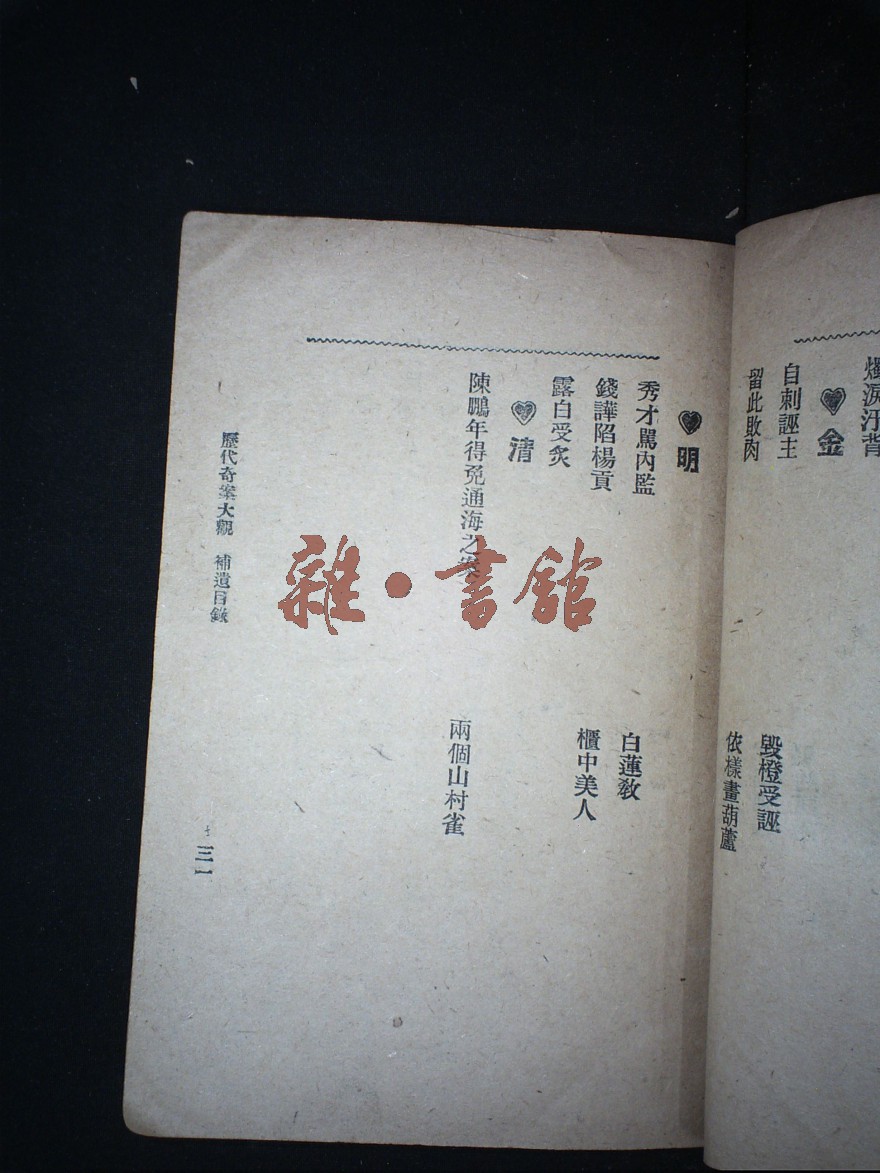 燭淚汗背
金
自刺誣主
毀橙受誣
留此敗肉
依樣畫葫蘆
明
秀才罵內監
白蓮敎
錢譁陷楊貢
櫃中美人
露白受炙
清
陳鵬年得免通海之案
兩個山村雀
歷代奇案大觀 補遺目錄
三一
雜·書館